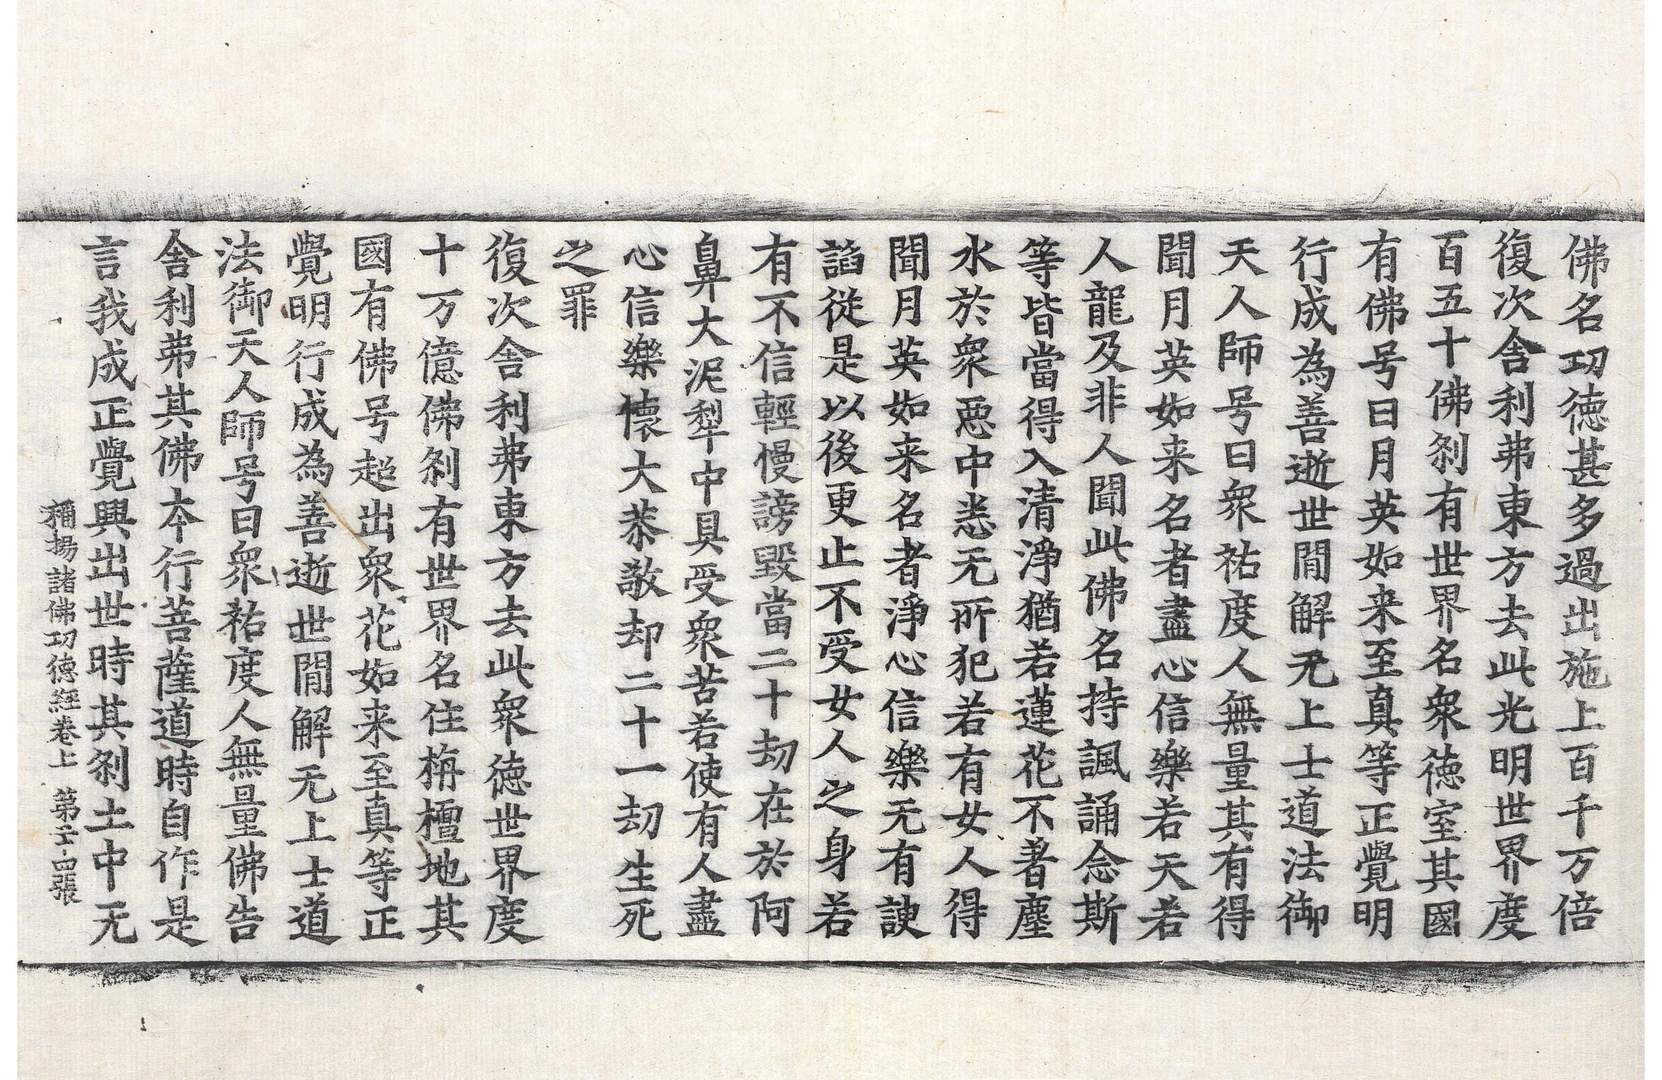 佛名㓛徳甚多過出施上百千万倍
復次舍利弗東方去此光明世界度
百五十佛刹有世界名衆徳室其國
有佛号曰月英如来至真等正覺明
行成為善逝世間解无上士道法御
天人師号曰衆祐度人無量其有得
聞月英如来名者盡心信樂若天若
人龍及非人聞此佛名持諷誦念斯
等皆當得入清淨猶若蓮花不著塵
水於衆惡中悉无所犯若有女人得
聞月英如来名者淨心信樂无有諛
諂從是以後更止不受女人之身若
有不信輕慢謗毀當二十劫在於阿
鼻大泥犁中具受衆苦若使有人盡
心信樂懐大恭敬却二十一劫生死
之罪
復次舍利弗東方去此衆徳世界度
十万億佛刹有世界名住栴檀地其
國有佛号超出衆花如来至真等正
覺明行成為善逝世間解无上士道
法御天人師号曰衆祐度人無量佛告
舍利弗其佛本行菩薩道時自作是
言我成正覺興出世時其刹土中无
稱揚諸佛㓛德經卷上 第 四張